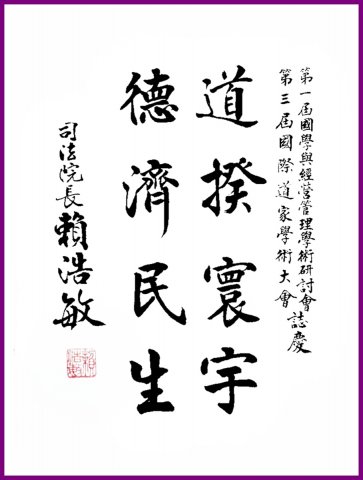 第一屆國學與經營管理學術研討會
第三屆國際道家學術大會 誌慶
道揆寰宇
德濟民生
司法院長 賴浩敏